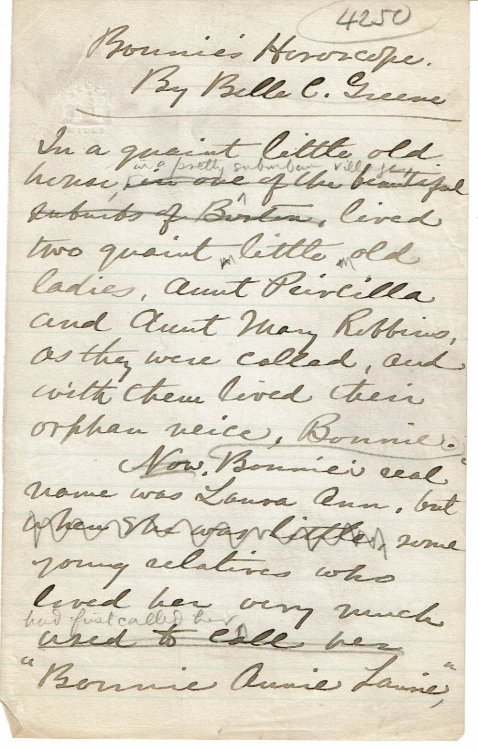 4250
Bonnie's Horoscope.
By Belle C. Greene
In a quaint little old
in a pretty suburban village
house, in one of the beautiful
suburbs of Boston, lived
two quaint little old
ladies, Aunt Pircilla
and Aunt Mary Robbins,
as they were called, and
with them lived their
orphan neice, Bonnie.
Now, Bonnie's real
name was Laura Ann, but
when she was little, some
young relatives who
loved her very much
had first called her
used to call her
"Bonnie Annie Laurie,"